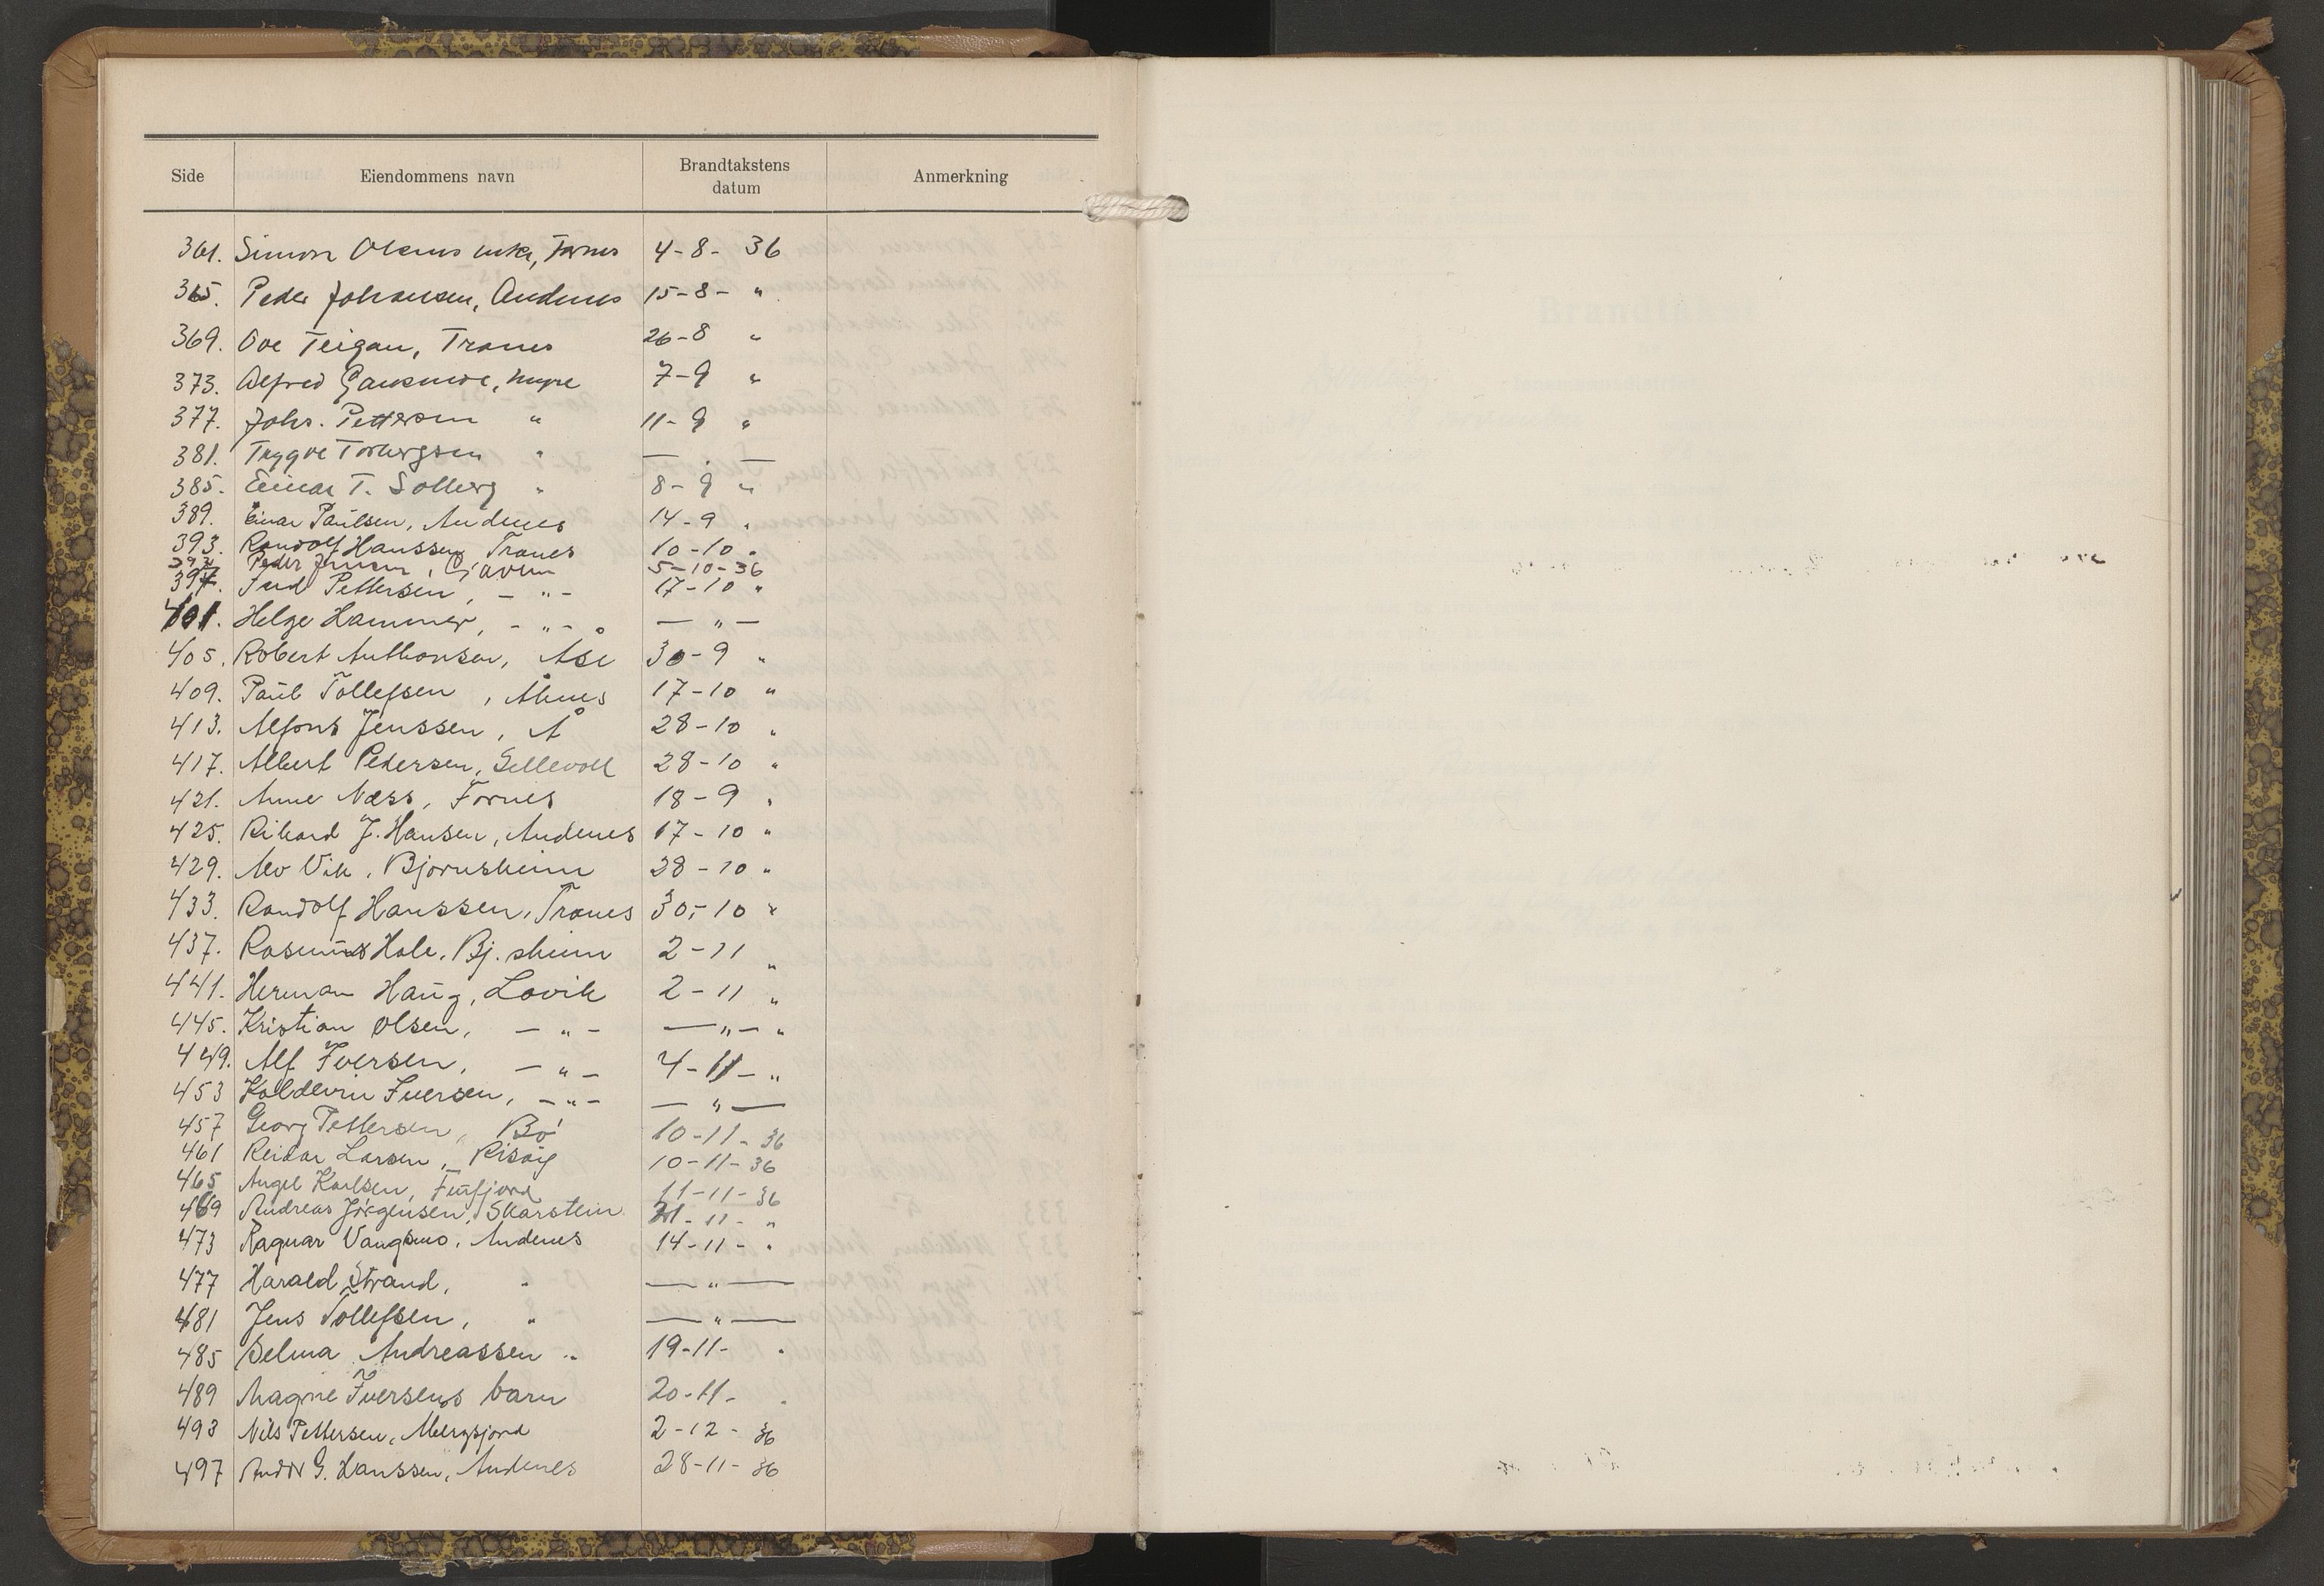 Side Eiendommens navn Brandtakstens datum Anmerkning
361. Simon Olsens enke, Fornes 4-8- 36
365. Peder Johansen, Andenes 15-8- "
369. Ove Teigan, Tranes 26-8 "
373. Alfred Gausmoe, Myre 7-9 "
377. Johs. Pettersen " 11-9 "
381. Trygve Torbergsen " — " —
385. Einar T. Solberg " 8-9 "
389. Einar Paulsen, Andenes 14-9 "
393. Randolf Hanssen, Tranes 10-10 "
Peder Jensen, 5-10-36
397. Pettersen, - " - 17-10 "
401. Helge Hammer, - " - — " —
405. Robert Anthonsen, Åse 30-9 "
409. Paul Tollefsen, Ånes 17-10 "
413. Alfons Jenssen, Å 28-10 "
417. Albert Pedersen, Sellevoll 28-10 "
421. Anne Næss, Fornes 18-9 "
425. Rikard J. Hansen, Andenes 17-10 "
429. Alv Vik, Bjørnsheim 28-10 "
433. Randolf Hanssen, Tranes 30,-10 "
437. Rasmus Hole, Bj.sheim 2-11 "
441. Herman Haug, Lovik 2-11 "
445. Kristian Olsen, - " - — " — "
449. Alf Iversen, - " - 4-11- "
453 Koldevin Iversen, - " - — " —
457 Georg Pettersen, Bø 10-11-36
461 Reidar Larsen, Risøy 10-11-36
465 Angel Karlsen, 11-11-36
469 Andreas Jørgensen, Skarstein 11- "
473 Ragnar Vangsmo, Andenes 14-11- "
477 Harald Strand, " — " —
481 Jens Tollefsen, " — " —
485 Selma Andreassen " 19-11- "
489 Magne Iversens barn 20-11- "
493 Nils Pettersen, 2-12-36
497 G. Hanssen, Andenes 28-11-36